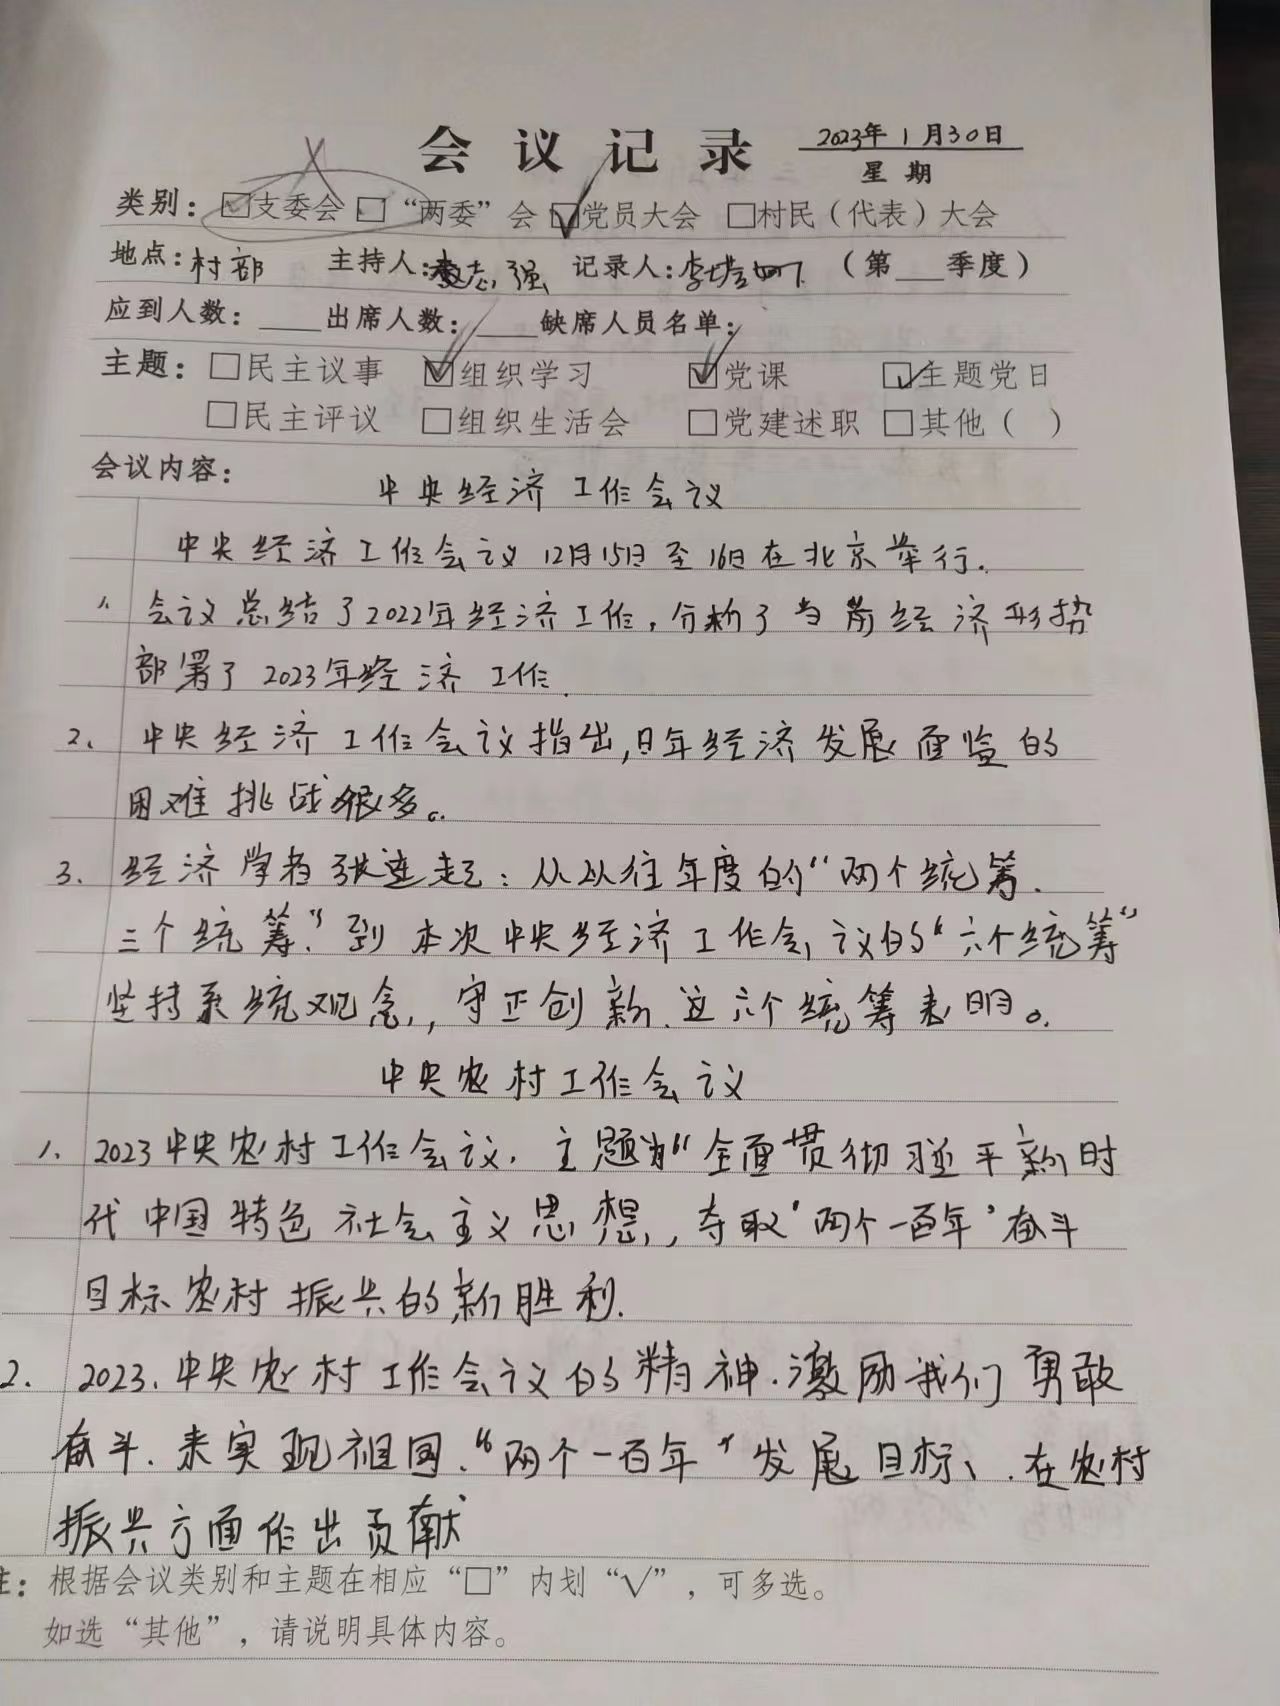 会议记录 2023年1月30日
星期
类别：☑支委会 □“两委”会 ☑党员大会 □村民（代表）大会
地点：村部 主持人：志强 记录人：李 （第___季度）
应到人数：___出席人数：___缺席人员名单：
主题：□民主议事 ☑组织学习 ☑党课 ☑主题党日
□民主评议 □组织生活会 □党建述职 □其他（ ）
会议内容： 中央经济工作会议
中央经济工作会议12月15日至16日在北京举行.
1. 会议总结了2022年经济工作，分析了当前经济形势
部署了2023年经济工作.
2. 中央经济工作会议指出,日年经济发展面临的
困难挑战很多。
3. 经济学者张连起：从以往年度的“两个统筹.
三个统筹.”到本次中央经济工作会议的“六个统筹”
坚持系统观念，守正创新.这六个统筹表明。
中央农村工作会议
1. 2023中央农村工作会议.主题为“全面贯彻习近平新时
代中国特色社会主义思想，夺取‘两个一百年’奋斗
目标农村振兴的新胜利.
2. 2023.中央农村工作会议的精神.激励我们勇敢
奋斗.来实现祖国.“两个一百年”发展目标、.在农村
振兴方面作出贡献
注：根据会议类别和主题在相应“□”内划“√”，可多选。
如选“其他”，请说明具体内容。